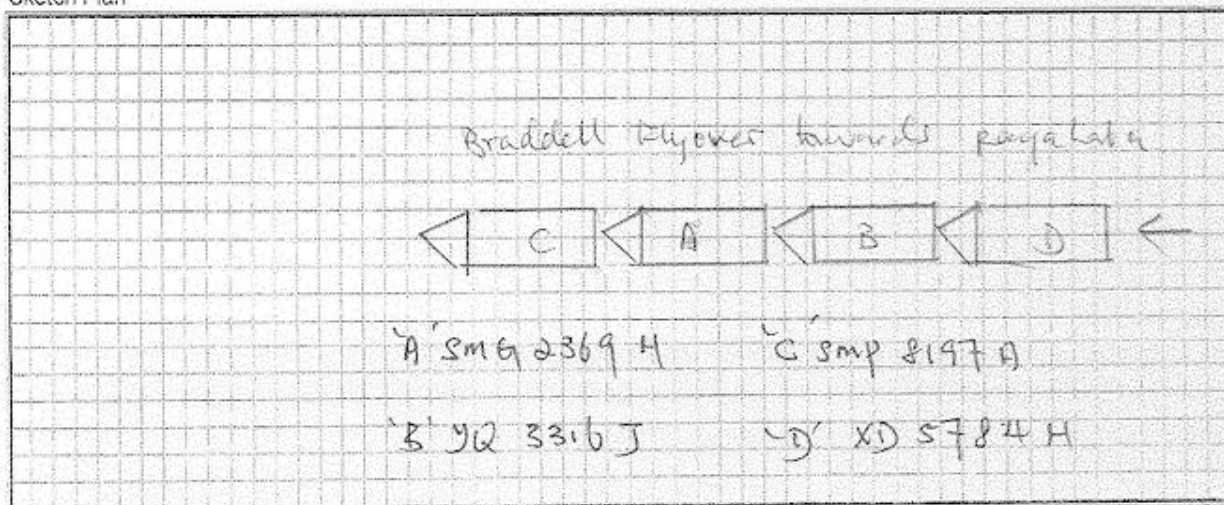 Sketch Plan
Braddell Flyover towards
C A B D
'A' SMG 2369 H 'C' SMP 8197 A
'B' YQ 3316 J 'D' XD 5784 H